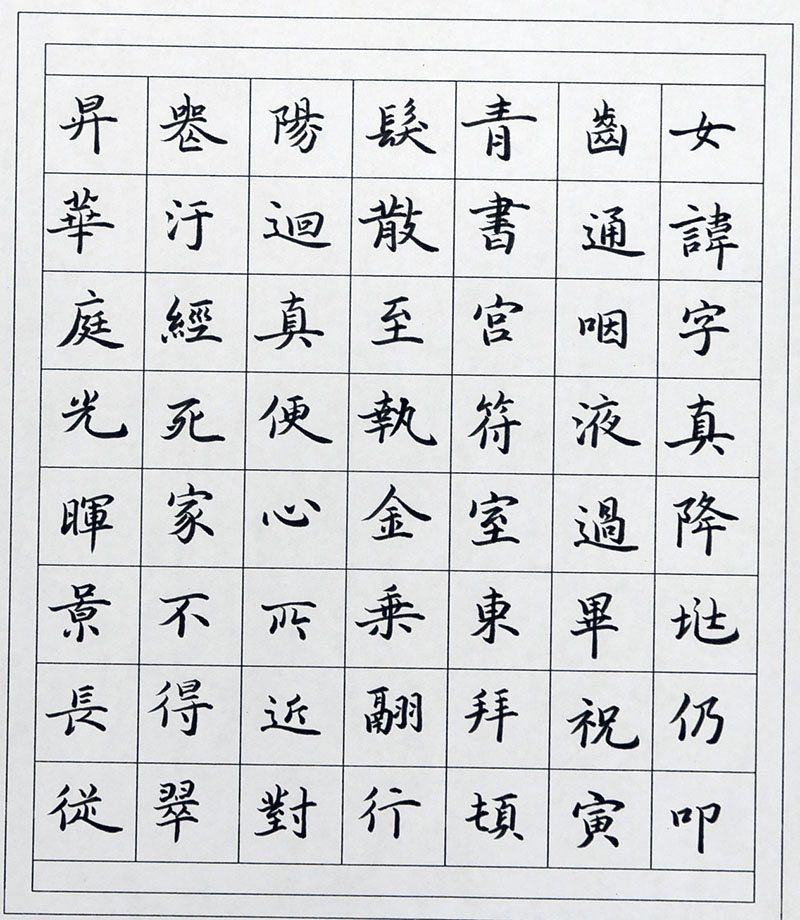 女諱字真降仍叩
齒通咽液過畢祝寅
青書宮符室東拜頓
髮散至執金乗翮行
陽迴真便心所近對
䘮汙經死家不得翠
昇華庭光暉景長従